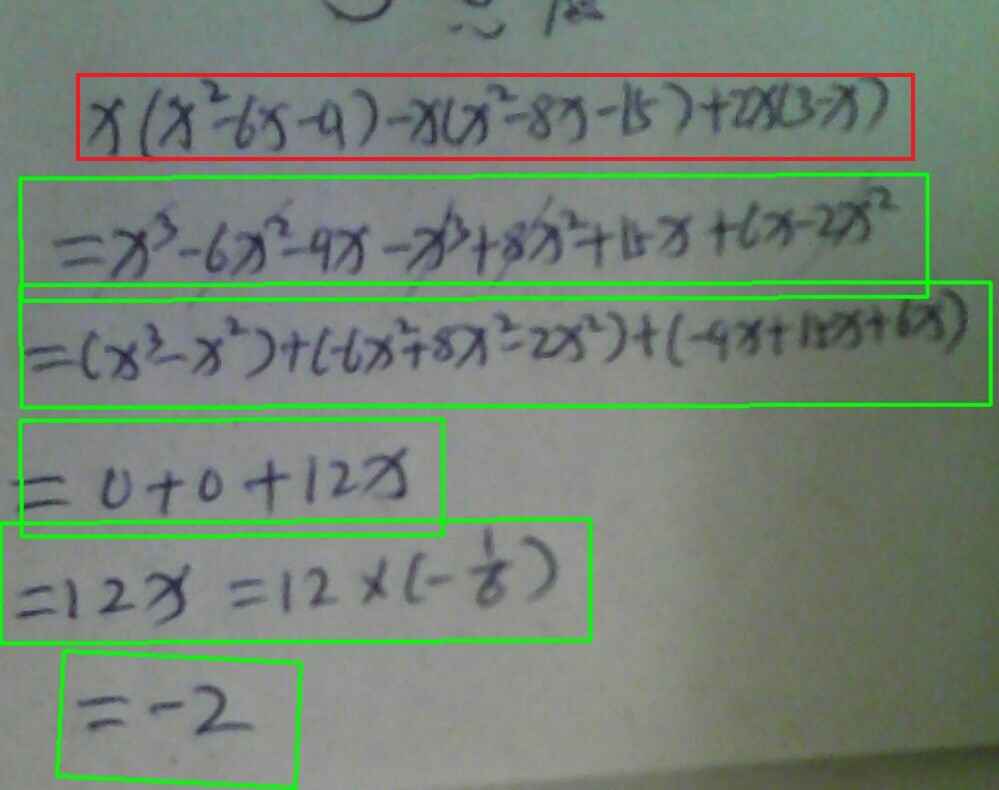 x(x²-6x-9)-x(x²-8x-15)+2x(3-x)
=x³-6x²-9x-x³+8x²+15x+6x-2x²
=(x³-x²)+(-6x²+8x²-2x²)+(-9x+15x+6x)
=0+0+12x
=12x=12×(-1/6)
=-2